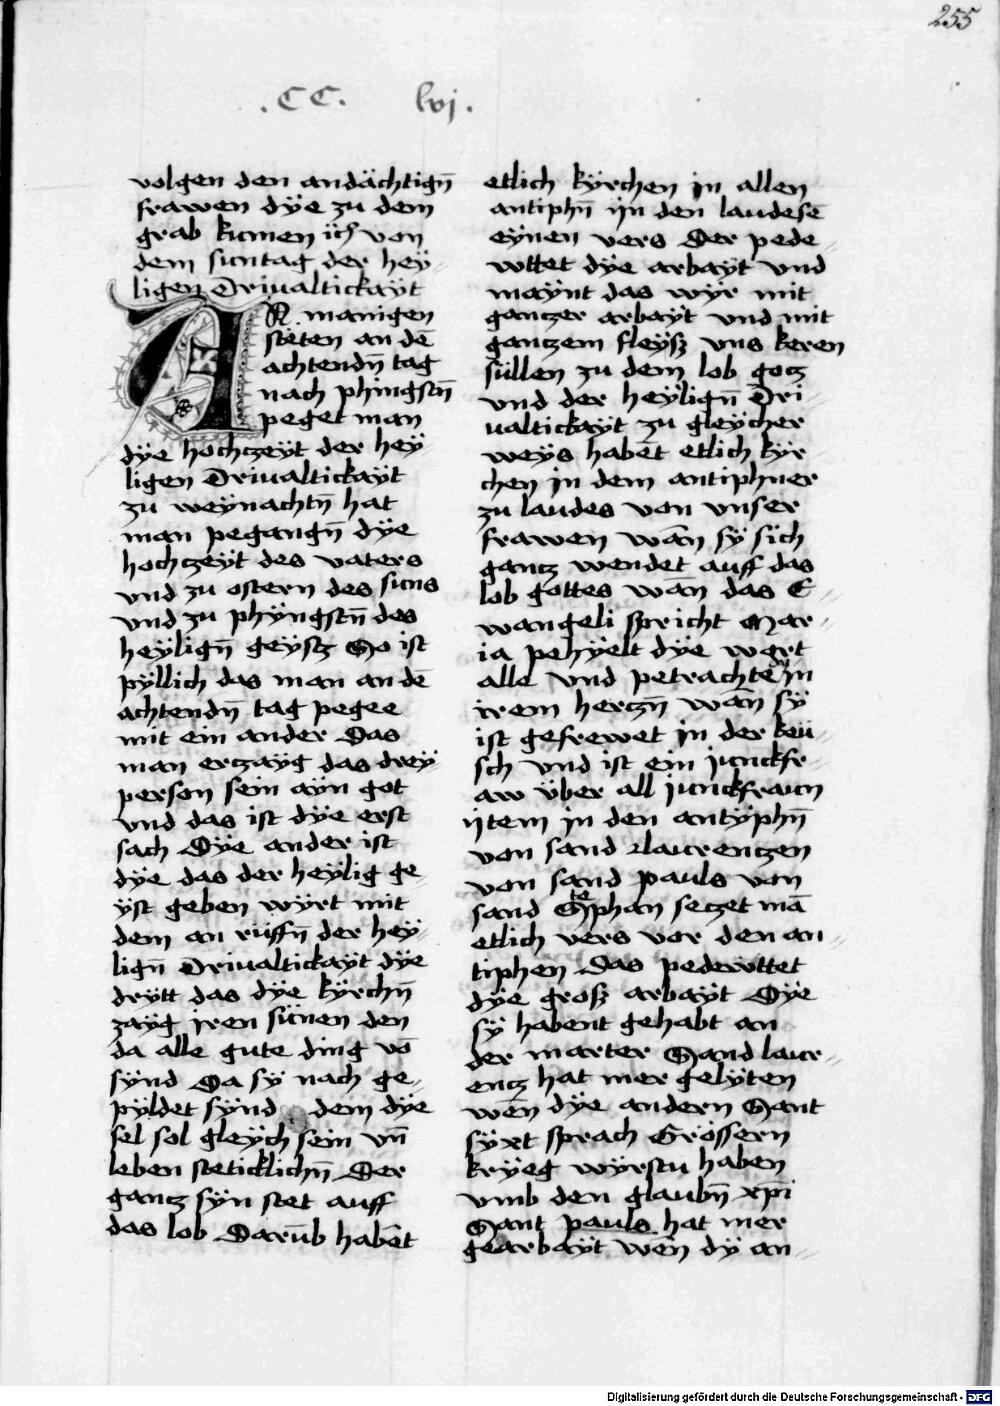 255
.CC. lvj.
volgen den andächtign̄
frawen dÿe zu dem
grab kumen ich von
dem suntag der heÿ-
ligen Driualtickaÿt
AN manigen
steten an dē
achtendn̄ tag
nach phingstn̄
peget man
dÿe hochzeÿt der heÿ
ligen Driualtickaÿt
zu weÿnachtn̄ hat
man pegangn̄ dÿe
hochzeÿt des vaters
vnd zu ostern des suns
vnd zu phÿngstn̄ des
heÿlign̄ geÿstz So ist
pÿllich das man an dē
achtendn̄ tag pegee
mit ein ander Das
man erzaÿg das dreÿ
person sein aÿn got
vnd das ist dÿe erst
sach Dÿe ander ist
dÿe das der heÿlig ge
ÿst geben wÿrt mit
dem an rüffn̄ der heÿ-
lign̄ Driualtickaÿt dÿe
drÿtt das dÿe kÿrchn̄
zaÿg jren sünen den
da alle gute ding vō
sÿnd Da sÿ nach ge-
pÿldet sÿnd dem dÿe
sel sol gleÿch sein vn̄
leben steticklichn̄ Der
gantz sÿn stet auff
das lob Darūb habēt
etlich kÿrchen jn allen
antiphn̄ ÿn den laudesē
eÿnen vers Der pede-
wttet dÿe arbaÿt vnd
maÿnt das wÿr mit
gantzer arbaÿt vnd mit
gantzem fleÿsz vns keren
süllen zu dem lob gotz
vnd der heÿlign̄ Dri-
ualtickaÿt zu gleÿcher
weÿs habēt etlich kÿr-
chen jn dem antiphner
zu laudes von vnser
frawen wān sÿ sich
gantz wendet auff das
lob gottes wān das E-
wangeli spricht Mar-
ia pehÿelt dÿe wort
alle vnd petrachtē sÿ jn
irem hertzn̄ wān sÿ
ist gefrewet jn der keü-
sch vnd ist ein junckfr-
aw über all junckfraun
ÿtem jn den antÿphn̄
von sand Laurentzen
von sand pauls von
sand Stephan setzet mā
etlich vers vor den an-
tiphen Das pedewttet
dÿe grosz arbaÿt Dÿe
sÿ habent gehabt an
der marter Sand laur-
entz hat mer gelÿten
wēn dÿe andern Sant
sÿxt sprach Grössern
krÿeg wÿrstu haben
vmb den glaubn̄ xp̄i
Sant pauls hat mer
gearbaÿt wēn dÿ an-
Digitalisierung gefördert durch die Deutsche Forschungsgemeinschaft - DFG